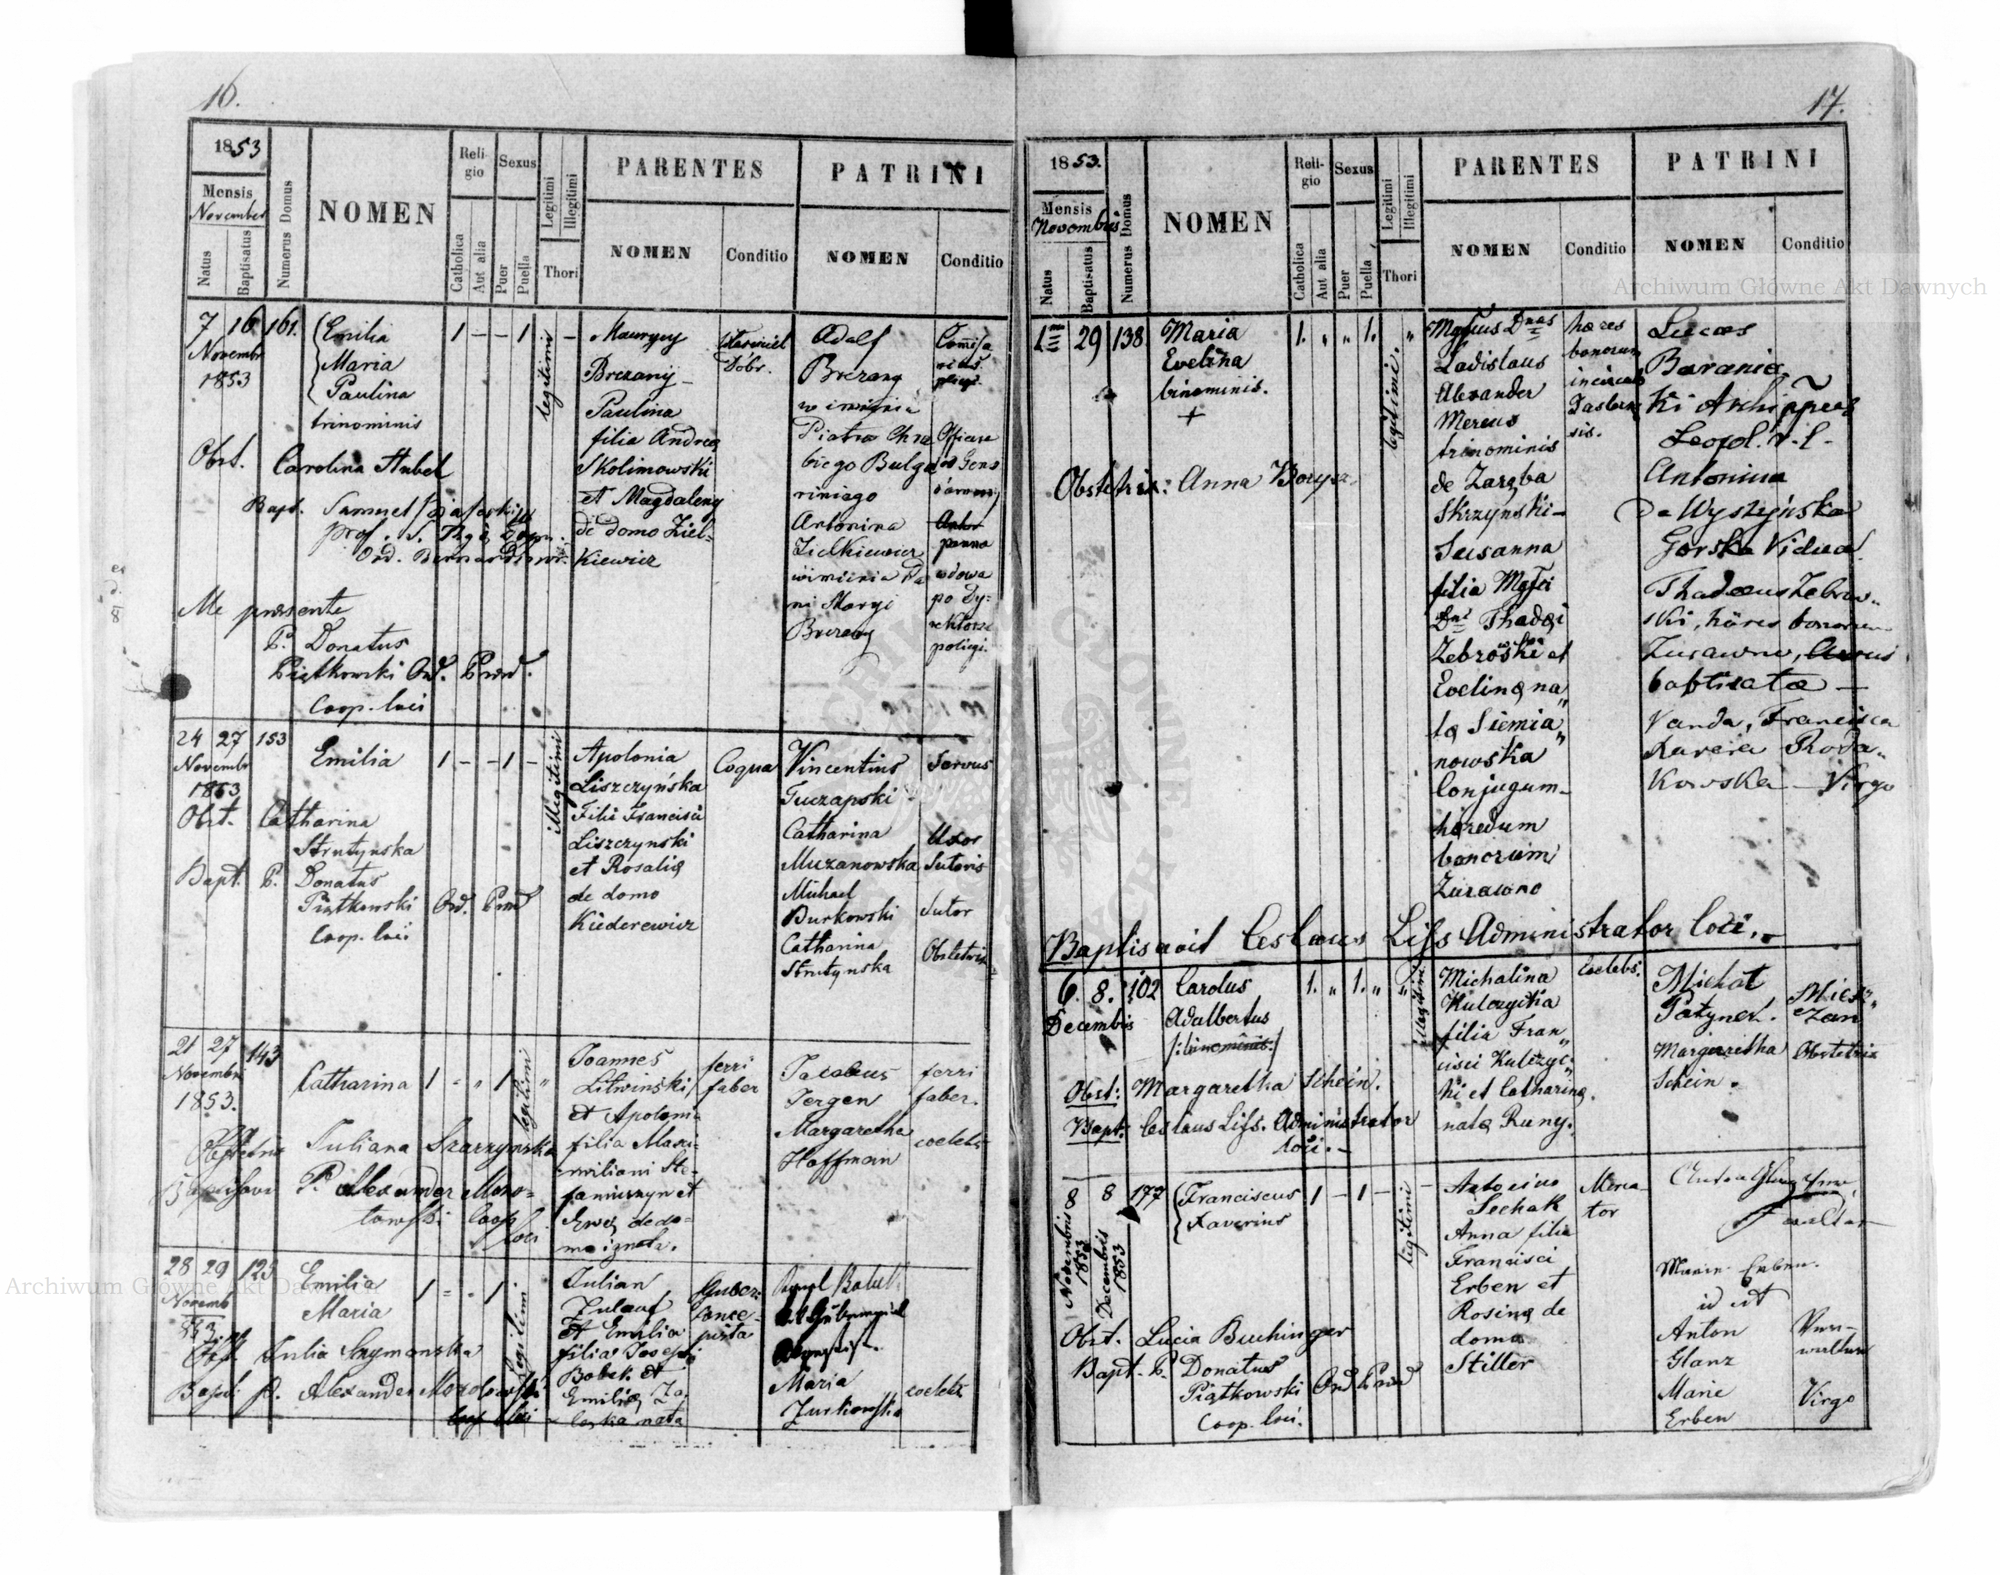 16.
1853
Mensis
November
Natus
Baptisatus
Numerus Domus
NOMEN
Religio
Catholica
Aut alia
Sexus
Puer
Puella
Legitimi
Illegitimi
Thori
PARENTES
NOMEN
Conditio
PATRINI
NOMEN
Conditio
7 16 161.
Novembr
1853
Emilia
Maria
Paulina
trinominis
1 – – 1
legitimi
Maurycy
Brezany
Paulina
filia Andreę
Skolimowski
et Magdaleny
de domo Ziel-
kiewicz
Dóbr.
Adolf
Brezany
w imieniu
Piotra Chrz
Antonina
Zielkiewicz
w imieniu Pa
ni Maryi
Brezany
panna
wdowa
po Dy-
rektorze
policyi.
Obst. Carolina Stubel
Bapt. Samuel
Me presente
P. Donatus
Piątkowski Ord. Praed.
Coop. loci
24 27 153
Novembr
1853
Emilia
1 – – 1 –
illegitimi
Apolonia
Liszczyńska
Filia Francisci
Liszczynski
et Rosalię
de domo
Kiederewicz
Coqua
Vincentius
Tuczapski
Catharina
Muzanowska
Michael
Burkowski
Catharina
Strutynska
Servus
Uxor
Sutoris
Sutor
Obstetrix
Obst. Catharina
Strutynska
Bapt. P. Donatus
Piątkowski Ord. Praed
Coop. loci
21 27 143
Novembr
1853.
Catharina
1 1
legitimi
Joannes
Litwinski
et Apolonia
filia Maxi-
miliani Ste-
faniuszyn et
Ewę de do-
mo ignota.
ferri
faber
Jacobus
Jergen
Margaretha
Hoffman
ferri
faber.
coelebs
Juliana Szarzynska
P. Alexander Moro-
towski Coop
loci
28 29 125
Novemb
853
Emilia
Maria
1 1
legitimi
Julian
Zulauf
et Emilia
filia Josefi
Bobek et
Emilię Za
leska nata
Maria
Zurkowska
coelebs
Obst. Julia Szymanska
Bapt. P. Alexander Morotowski
Coop loci
17.
1853.
Mensis
Novembris
Natus
Baptisatus
Numerus Domus
NOMEN
Religio
Catholica
Aut alia
Sexus
Puer
Puella
Legitimi
Illegitimi
Thori
PARENTES
NOMEN
Conditio
PATRINI
NOMEN
Conditio
1 29 138
Maria
Evelina
binominis.
+
1. „ „ 1. „
legitimi.
Mgfius Dnus
Ladislaus
Alexander
Mereus
trinominis
de Zaręba
Skrzynski –
Susanna
filia Mgfci
Dni Thadęi
Zebroski et
Evelinę na„
tę Siemia„
nowska
Conjugum –
hæredum
bonorum
Zurawno
hæres
bonorum
in circulo
Jaslen
sis.
Lucas
Baranie„
ki Archippeus
Leopol. r. l.
Antonina
De Wyszyńska
Gorska Vidua.
Thadeus Zebrow„
ski, häres bonorum
Zurawno, Avus
baptisatæ –
Vanda, Francisca
Xaveria Roda„
kowska – Virgo
Obstetrix: Anna Borysa
Baptisavit Ceslaus Liss Administrator loci. –
6. 8. 102
Decembris
Carolus
Adalbertus
/:binominis:/
1. „ 1. „ „
illegitim.
Michalina
Kulczycka
filia Fran„
cisci Kulczyc„
ki et Catharinę
natę Runy.
Coelebs.
Michał
Patynek.
Margaretha
Schein.
Miesz„
zan
Obstetrix
Obst: Margaretha Schein.
Bapt: Ceslaus Liss. Administrator
loci. –
8 8 177
Decembris
1853
Decembris
1853
Franciscus
Xaverius
1 – 1 –
legitimi
Antonius
Sechak
Anna filia
Francisci
Erben et
Rosinę de
domo
Stiller
Merca
tor
Marie Erben.
id est
Anton
Glanz
Marie
Erben
Ver-
walter
Virgo
Obst. Lucia Buchinger
Bapt. P. Donatus
Piątkowski Ord Praed
Coop. loci.
Archiwum Główne Akt Dawnych
Archiwum Główne Akt Dawnych